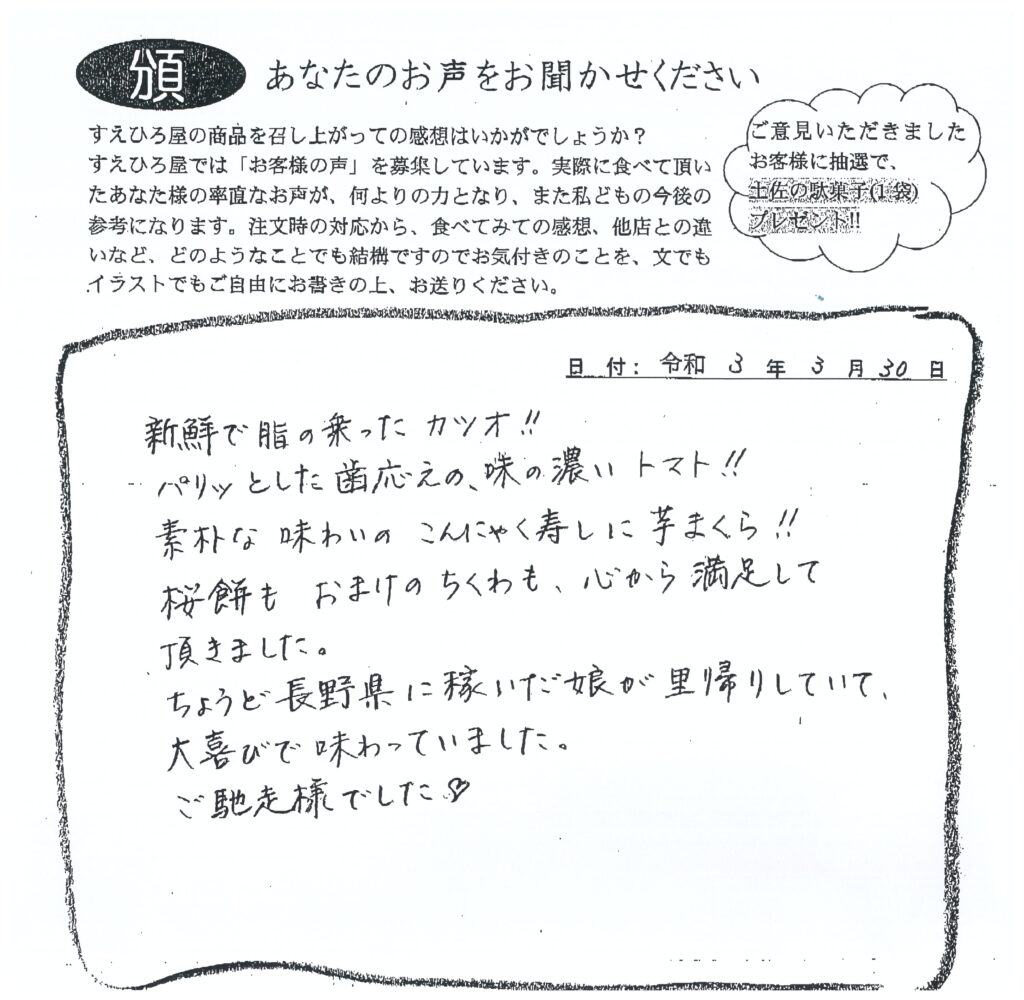 頒
あなたのお声をお聞かせください
すえひろ屋の商品を召し上がっての感想はいかがでしょうか?
すえひろ屋では「お客様の声」を募集しています。実際に食べて頂い
たあなた様の率直なお声が、何よりの力となり、また私どもの今後の
参考になります。注文時の対応から、食べてみての感想、他店との違
いなど、どのようなことでも結構ですのでお気付きのことを、文でも
イラストでもご自由にお書きの上、お送りください。
ご意見いただきました
お客様に抽選で、
土佐の駄菓子(1袋)
プレゼント!!
日 付: 令和 3 年 3 月 30 日
新鮮で脂の乗ったカツオ!!
パリッとした歯応えの、味の濃いトマト!!
素朴な味わいのこんにゃく寿しに芋まくら!!
桜餅も おまけのちくわも、心から満足して
頂きました。
ちょうど長野県に稼いだ娘が里帰りしていて、
大喜びで味わっていました。
ご馳走様でした♡